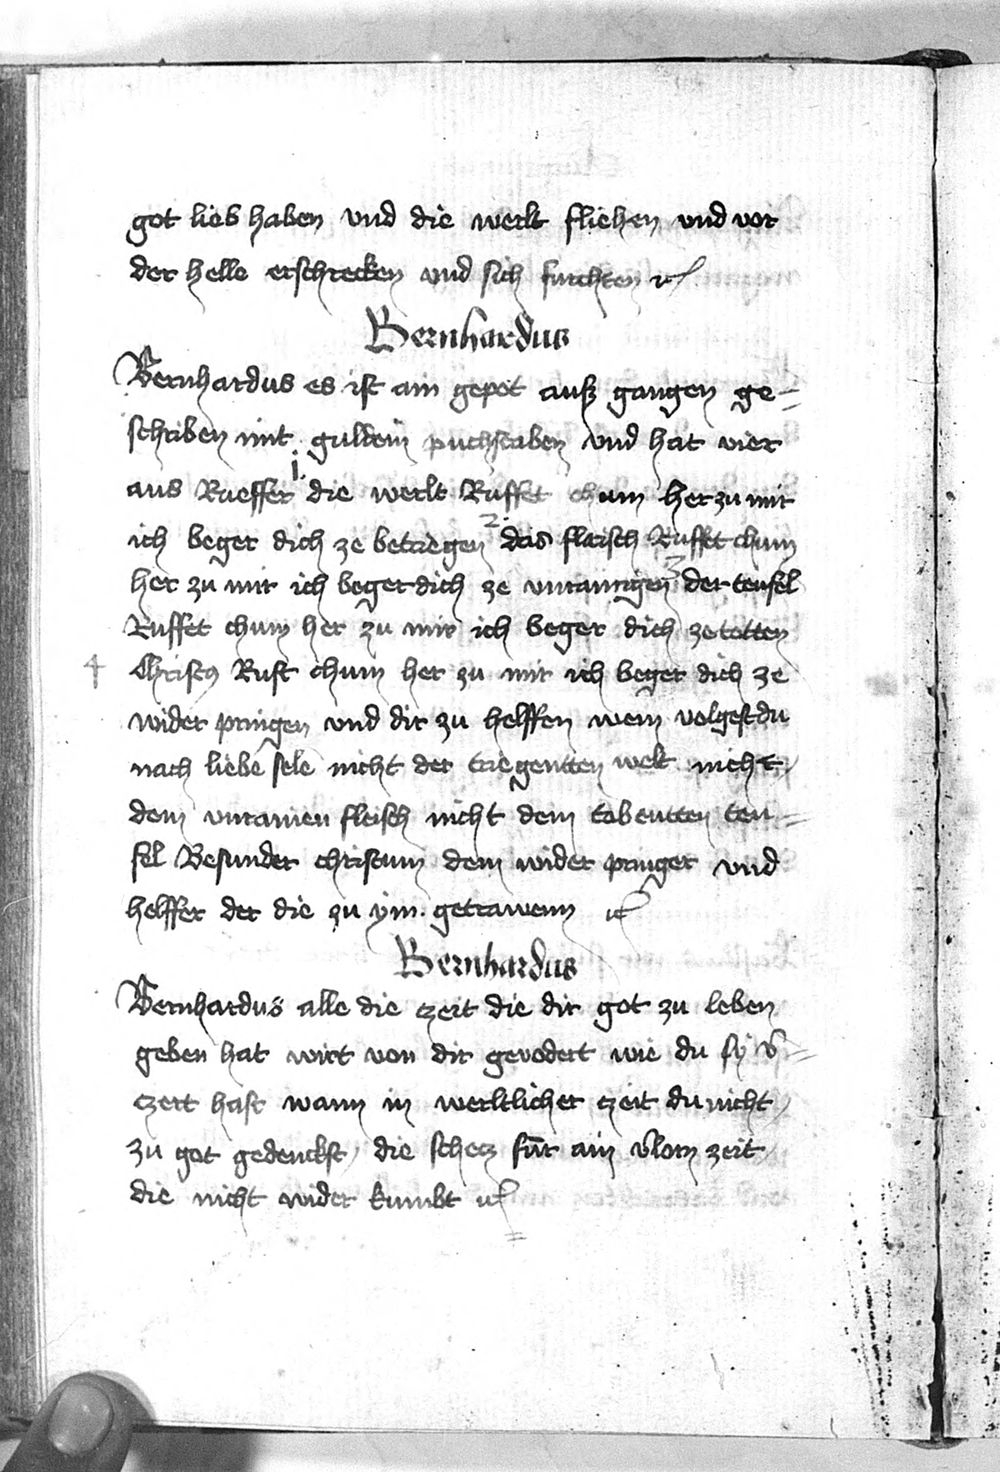 got lieb haben vnd die werlt fliehen vnd vor
der helle erschrecken vnd sich furchten ꝛc
Bernhardus
Bernhardus es ist ain gepot auß gangen ge=
schriben mit guldein puchstaben vnd hat vier
aus Rueffer 1. die werlt Ruffet chum her zu mir
ich beger dich ze betriegen 2. das fleisch Ruffet chum
her zu mir ich beger dich ze vnrainigen 3 der teufel
Ruffet chum her zu mir ich beger dich ze totten
4 Christus Ruft chum her zu mir ich beger dich ze
wider pringen vnd dir zu helffen wem volgest du
nach liebe sele nicht der triegentten welt nicht
dem vnrainen fleisch nicht dem tobentten teu=
fel Besunder christum dem wider pringer vnd
helffer der die zu ym getrawenn ꝛc
Bernhardus
Bernhardus alle die czeit die dir got zu leben
geben hat wirt von dir gevodert wie du sy v̈=
czert hast wann in werltlicher czeit du nicht
zu got gedenckst die schecz für ain v̈lorn zeit
die nicht wider kumbt ꝛc